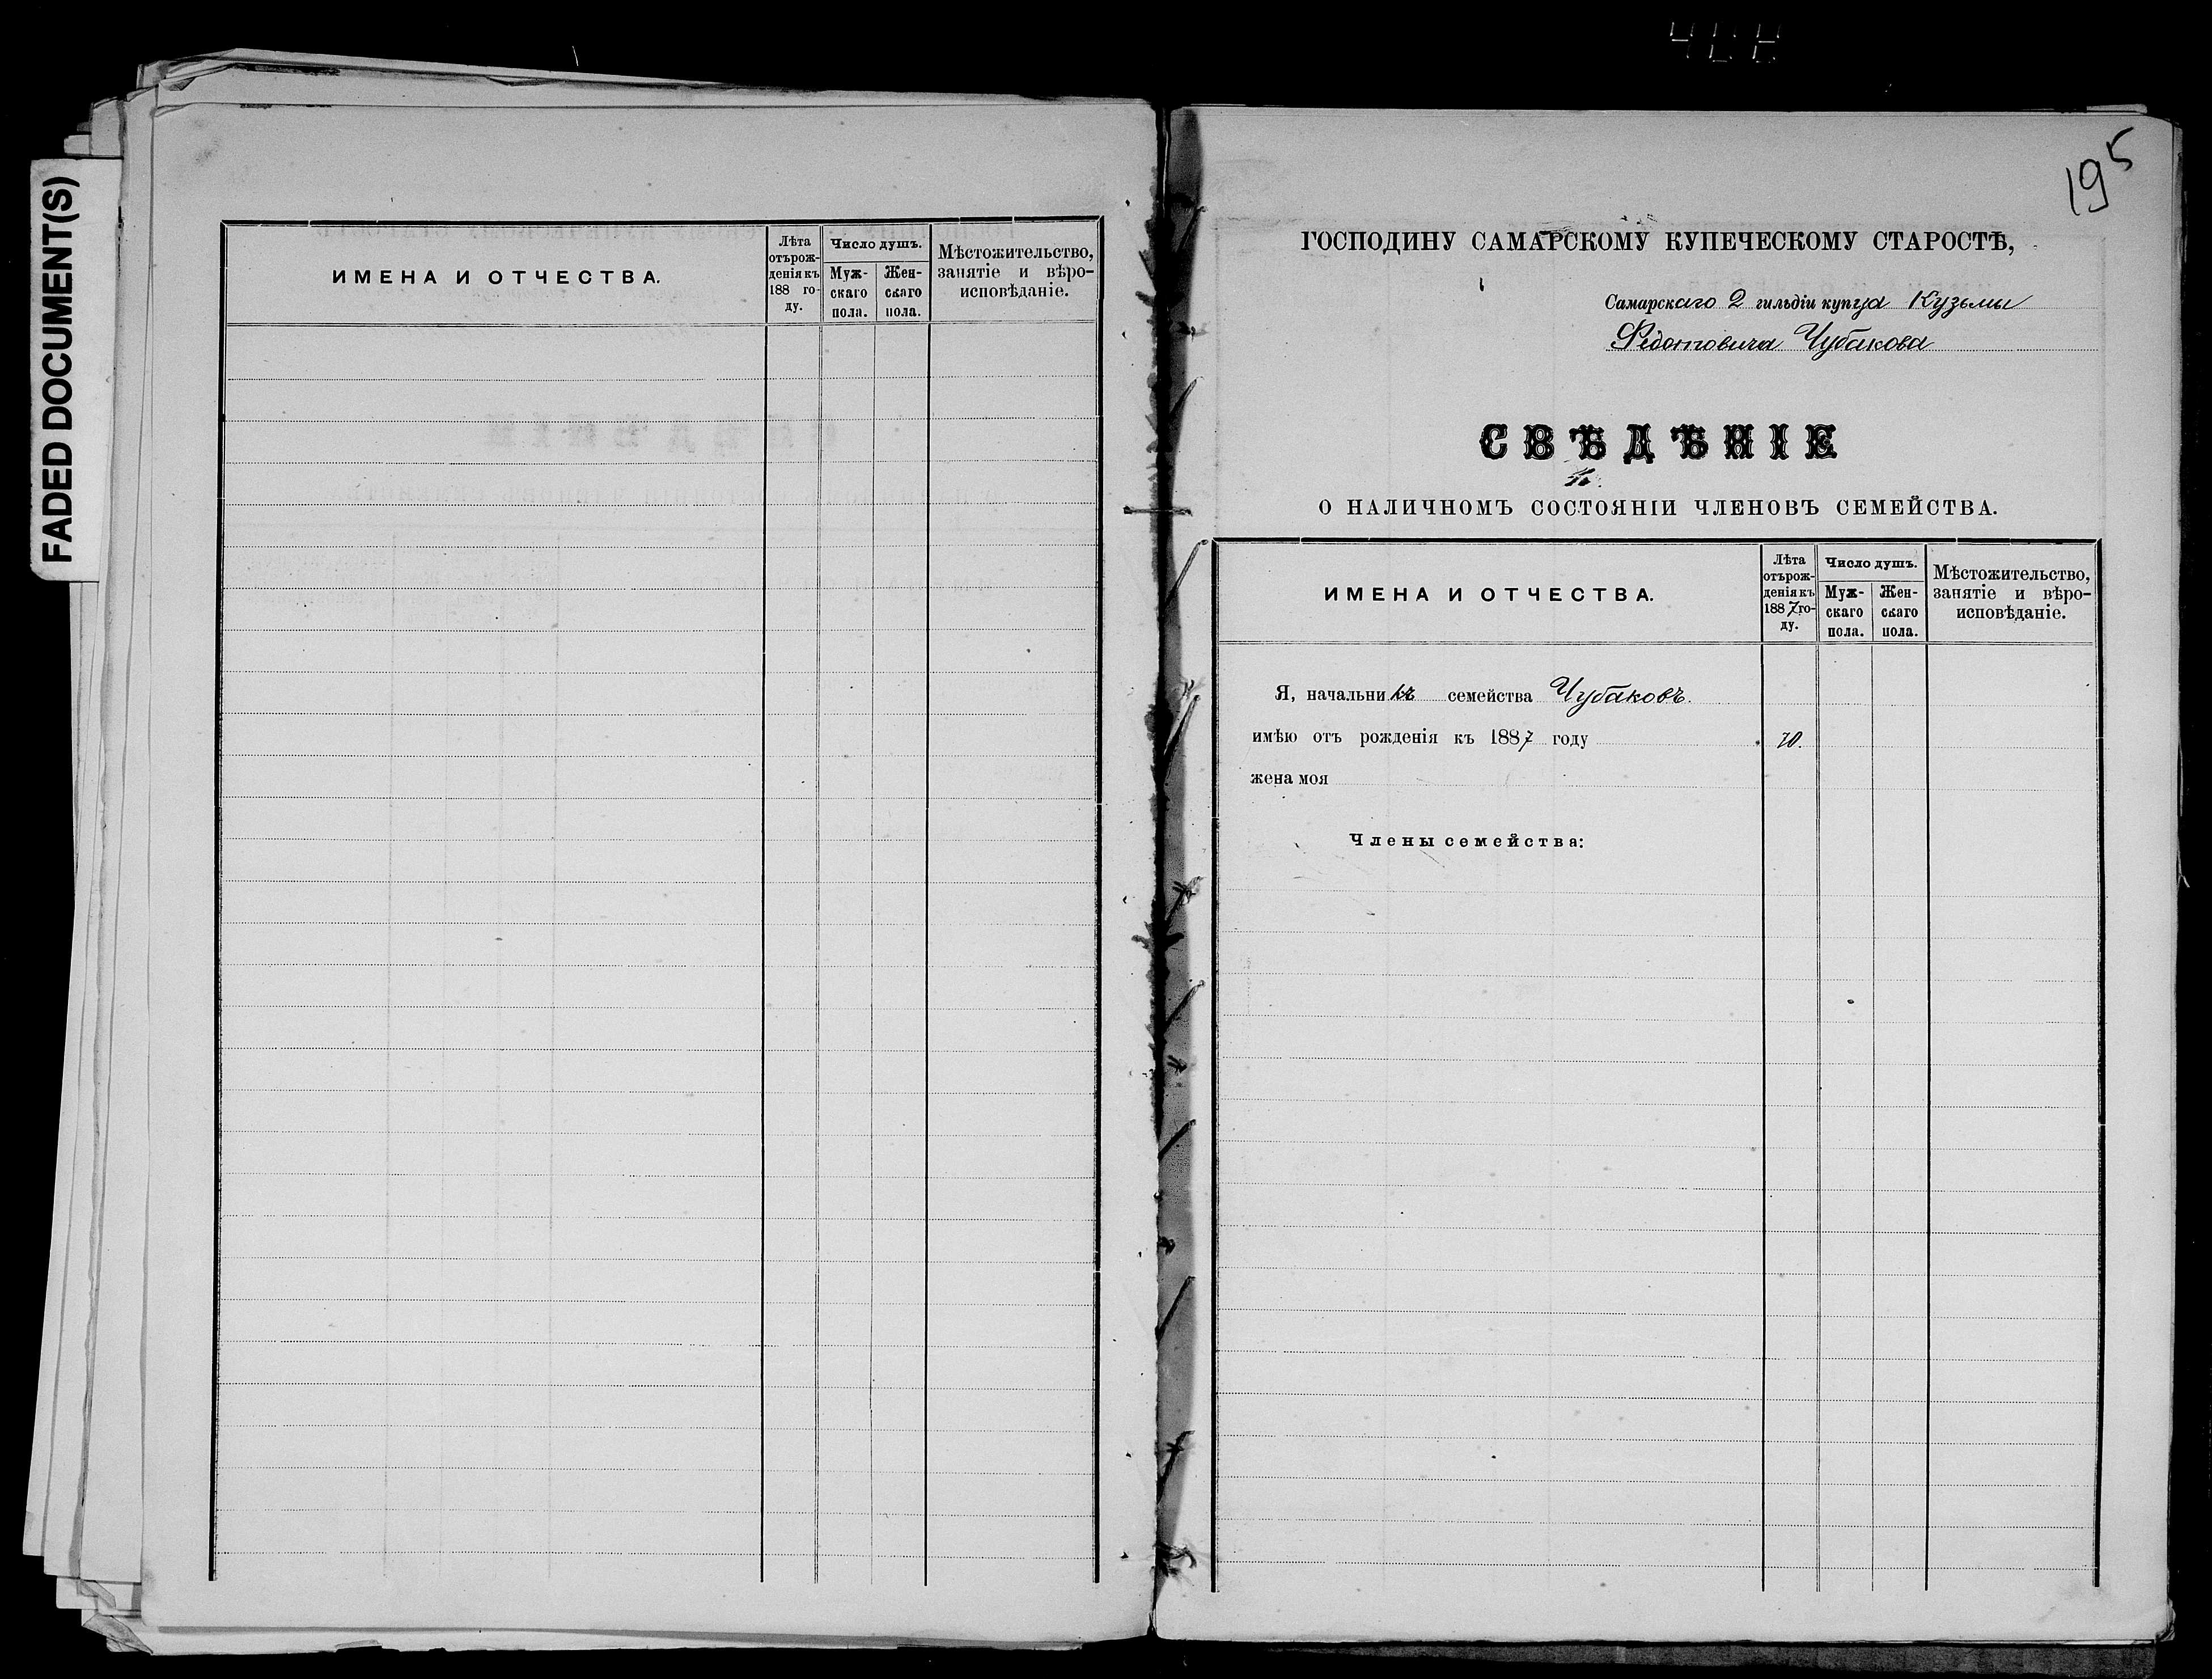 FADED DOCUMENT(S)
ИМЕНА И ОТЧЕСТВА.
Лѣта
отърож-
денія къ
188 го-
ду.
Число душъ.
Муж-
скаго
пола.
Жен-
скаго
пола.
Мѣстожительство,
занятіе и вѣро-
исповѣданіе.
195
ГОСПОДИНУ САМАРСКОМУ КУПЕЧЕСКОМУ СТАРОСТѢ,
Самарскаго 2 гильдіи купца Кузьмы
Федотовича Чубакова
СВѢДѢНІЕ
О НАЛИЧНОМЪ СОСТОЯНІИ ЧЛЕНОВЪ СЕМЕЙСТВА.
ИМЕНА И ОТЧЕСТВА.
Лѣта
отърож-
денія къ
1887 го-
ду.
Число душъ.
Муж-
скаго
пола.
Жен-
скаго
пола.
Мѣстожительство,
занятіе и вѣро-
исповѣданіе.
Я, начальникъ семейства Чубаковъ.
имѣю отъ рожденія къ 1887 году 70.
жена моя
Члены семейства: